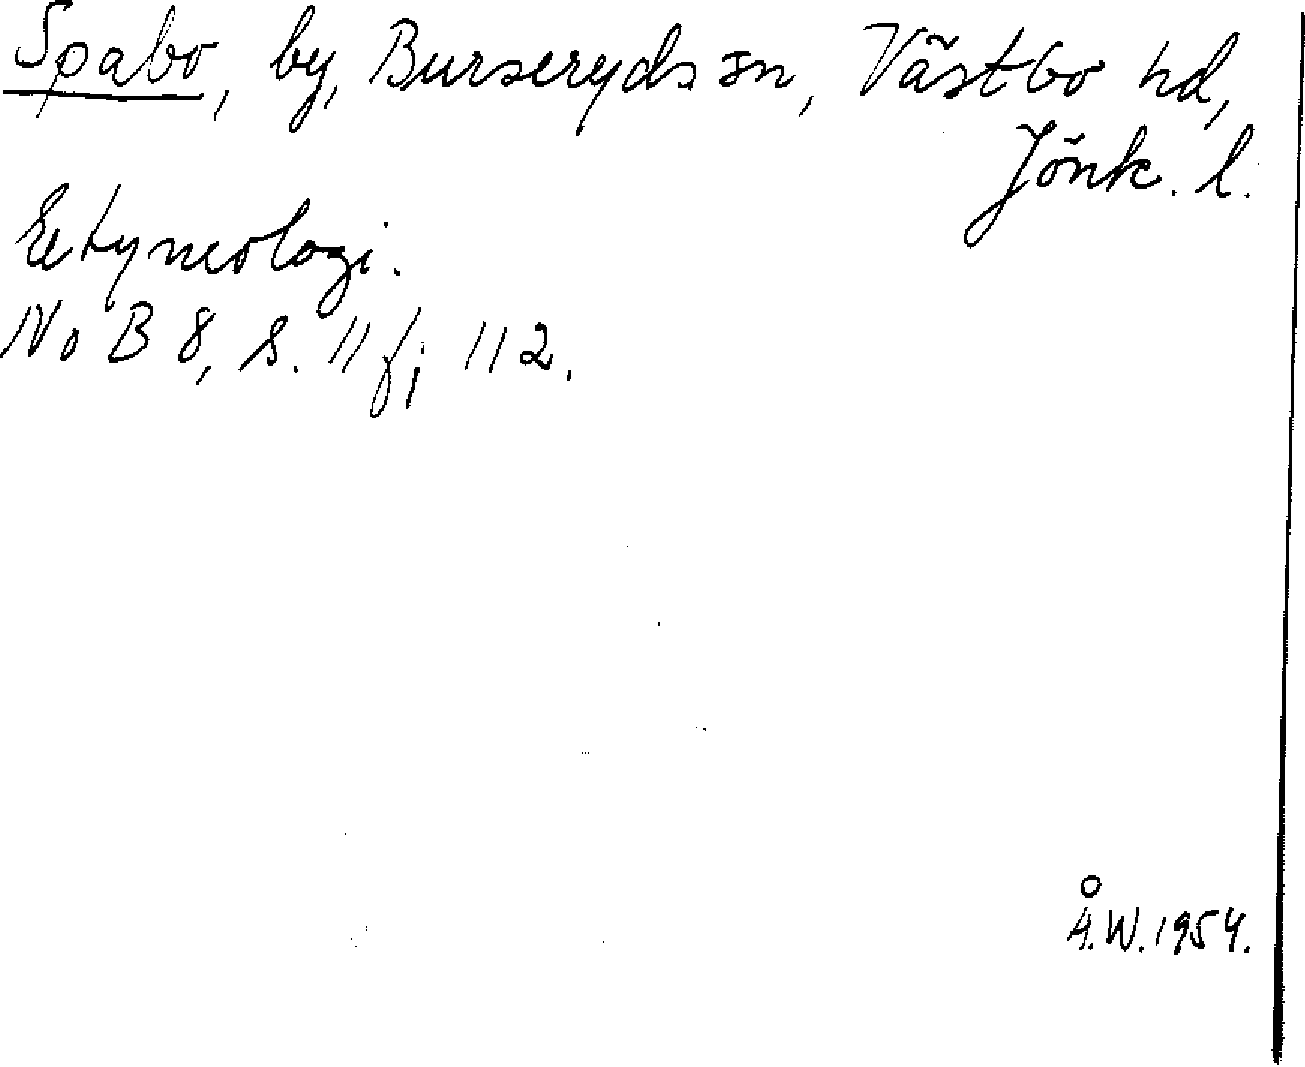 Spabo, by, Burseryds sn, Västbo hd,
Jönk. l.
Etymologi.
NoB 8, s. 11 f; 112.
Å.W. 1954.